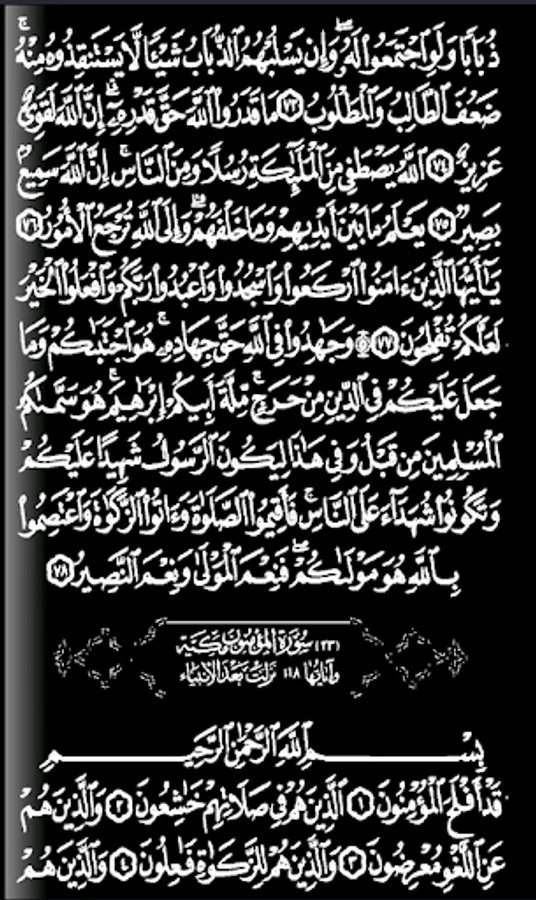 ذُبَابًا وَلَوِ ٱجْتَمَعُوا۟ لَهُۥ ۖ وَإِن يَسْلُبْهُمُ ٱلذُّبَابُ شَيْـًٔا لَّا يَسْتَنقِذُوهُ مِنْهُ ۚ
ضَعُفَ ٱلطَّالِبُ وَٱلْمَطْلُوبُ ﴿٧٣﴾ مَا قَدَرُوا۟ ٱللَّهَ حَقَّ قَدْرِهِۦٓ ۗ إِنَّ ٱللَّهَ لَقَوِىٌّ
عَزِيزٌ ﴿٧٤﴾ ٱللَّهُ يَصْطَفِى مِنَ ٱلْمَلَـٰٓئِكَةِ رُسُلًا وَمِنَ ٱلنَّاسِ ۚ إِنَّ ٱللَّهَ سَمِيعٌۢ
بَصِيرٌ ﴿٧٥﴾ يَعْلَمُ مَا بَيْنَ أَيْدِيهِمْ وَمَا خَلْفَهُمْ ۗ وَإِلَى ٱللَّهِ تُرْجَعُ ٱلْأُمُورُ ﴿٧٦﴾
يَـٰٓأَيُّهَا ٱلَّذِينَ ءَامَنُوا۟ ٱرْكَعُوا۟ وَٱسْجُدُوا۟ وَٱعْبُدُوا۟ رَبَّكُمْ وَٱفْعَلُوا۟ ٱلْخَيْرَ
لَعَلَّكُمْ تُفْلِحُونَ ۩ ﴿٧٧﴾ وَجَـٰهِدُوا۟ فِى ٱللَّهِ حَقَّ جِهَادِهِۦ ۚ هُوَ ٱجْتَبَىٰكُمْ وَمَا
جَعَلَ عَلَيْكُمْ فِى ٱلدِّينِ مِنْ حَرَجٍ ۚ مِّلَّةَ أَبِيكُمْ إِبْرَٰهِيمَ ۚ هُوَ سَمَّىٰكُمُ
ٱلْمُسْلِمِينَ مِن قَبْلُ وَفِى هَـٰذَا لِيَكُونَ ٱلرَّسُولُ شَهِيدًا عَلَيْكُمْ
وَتَكُونُوا۟ شُهَدَآءَ عَلَى ٱلنَّاسِ ۚ فَأَقِيمُوا۟ ٱلصَّلَوٰةَ وَءَاتُوا۟ ٱلزَّكَوٰةَ وَٱعْتَصِمُوا۟
بِٱللَّهِ هُوَ مَوْلَىٰكُمْ ۖ فَنِعْمَ ٱلْمَوْلَىٰ وَنِعْمَ ٱلنَّصِيرُ ﴿٧٨﴾
(٢٣) سُورَةُ المُؤْمِنُونَ مَكِّيَّة
وَآيَاتُهَا ١١٨ نَزَلَتْ بَعْدَ الأَنْبِيَاءِ
بِسْمِ ٱللَّهِ ٱلرَّحْمَـٰنِ ٱلرَّحِيمِ
قَدْ أَفْلَحَ ٱلْمُؤْمِنُونَ ﴿١﴾ ٱلَّذِينَ هُمْ فِى صَلَاتِهِمْ خَـٰشِعُونَ ﴿٢﴾ وَٱلَّذِينَ هُمْ
عَنِ ٱللَّغْوِ مُعْرِضُونَ ﴿٣﴾ وَٱلَّذِينَ هُمْ لِلزَّكَوٰةِ فَـٰعِلُونَ ﴿٤﴾ وَٱلَّذِينَ هُمْ